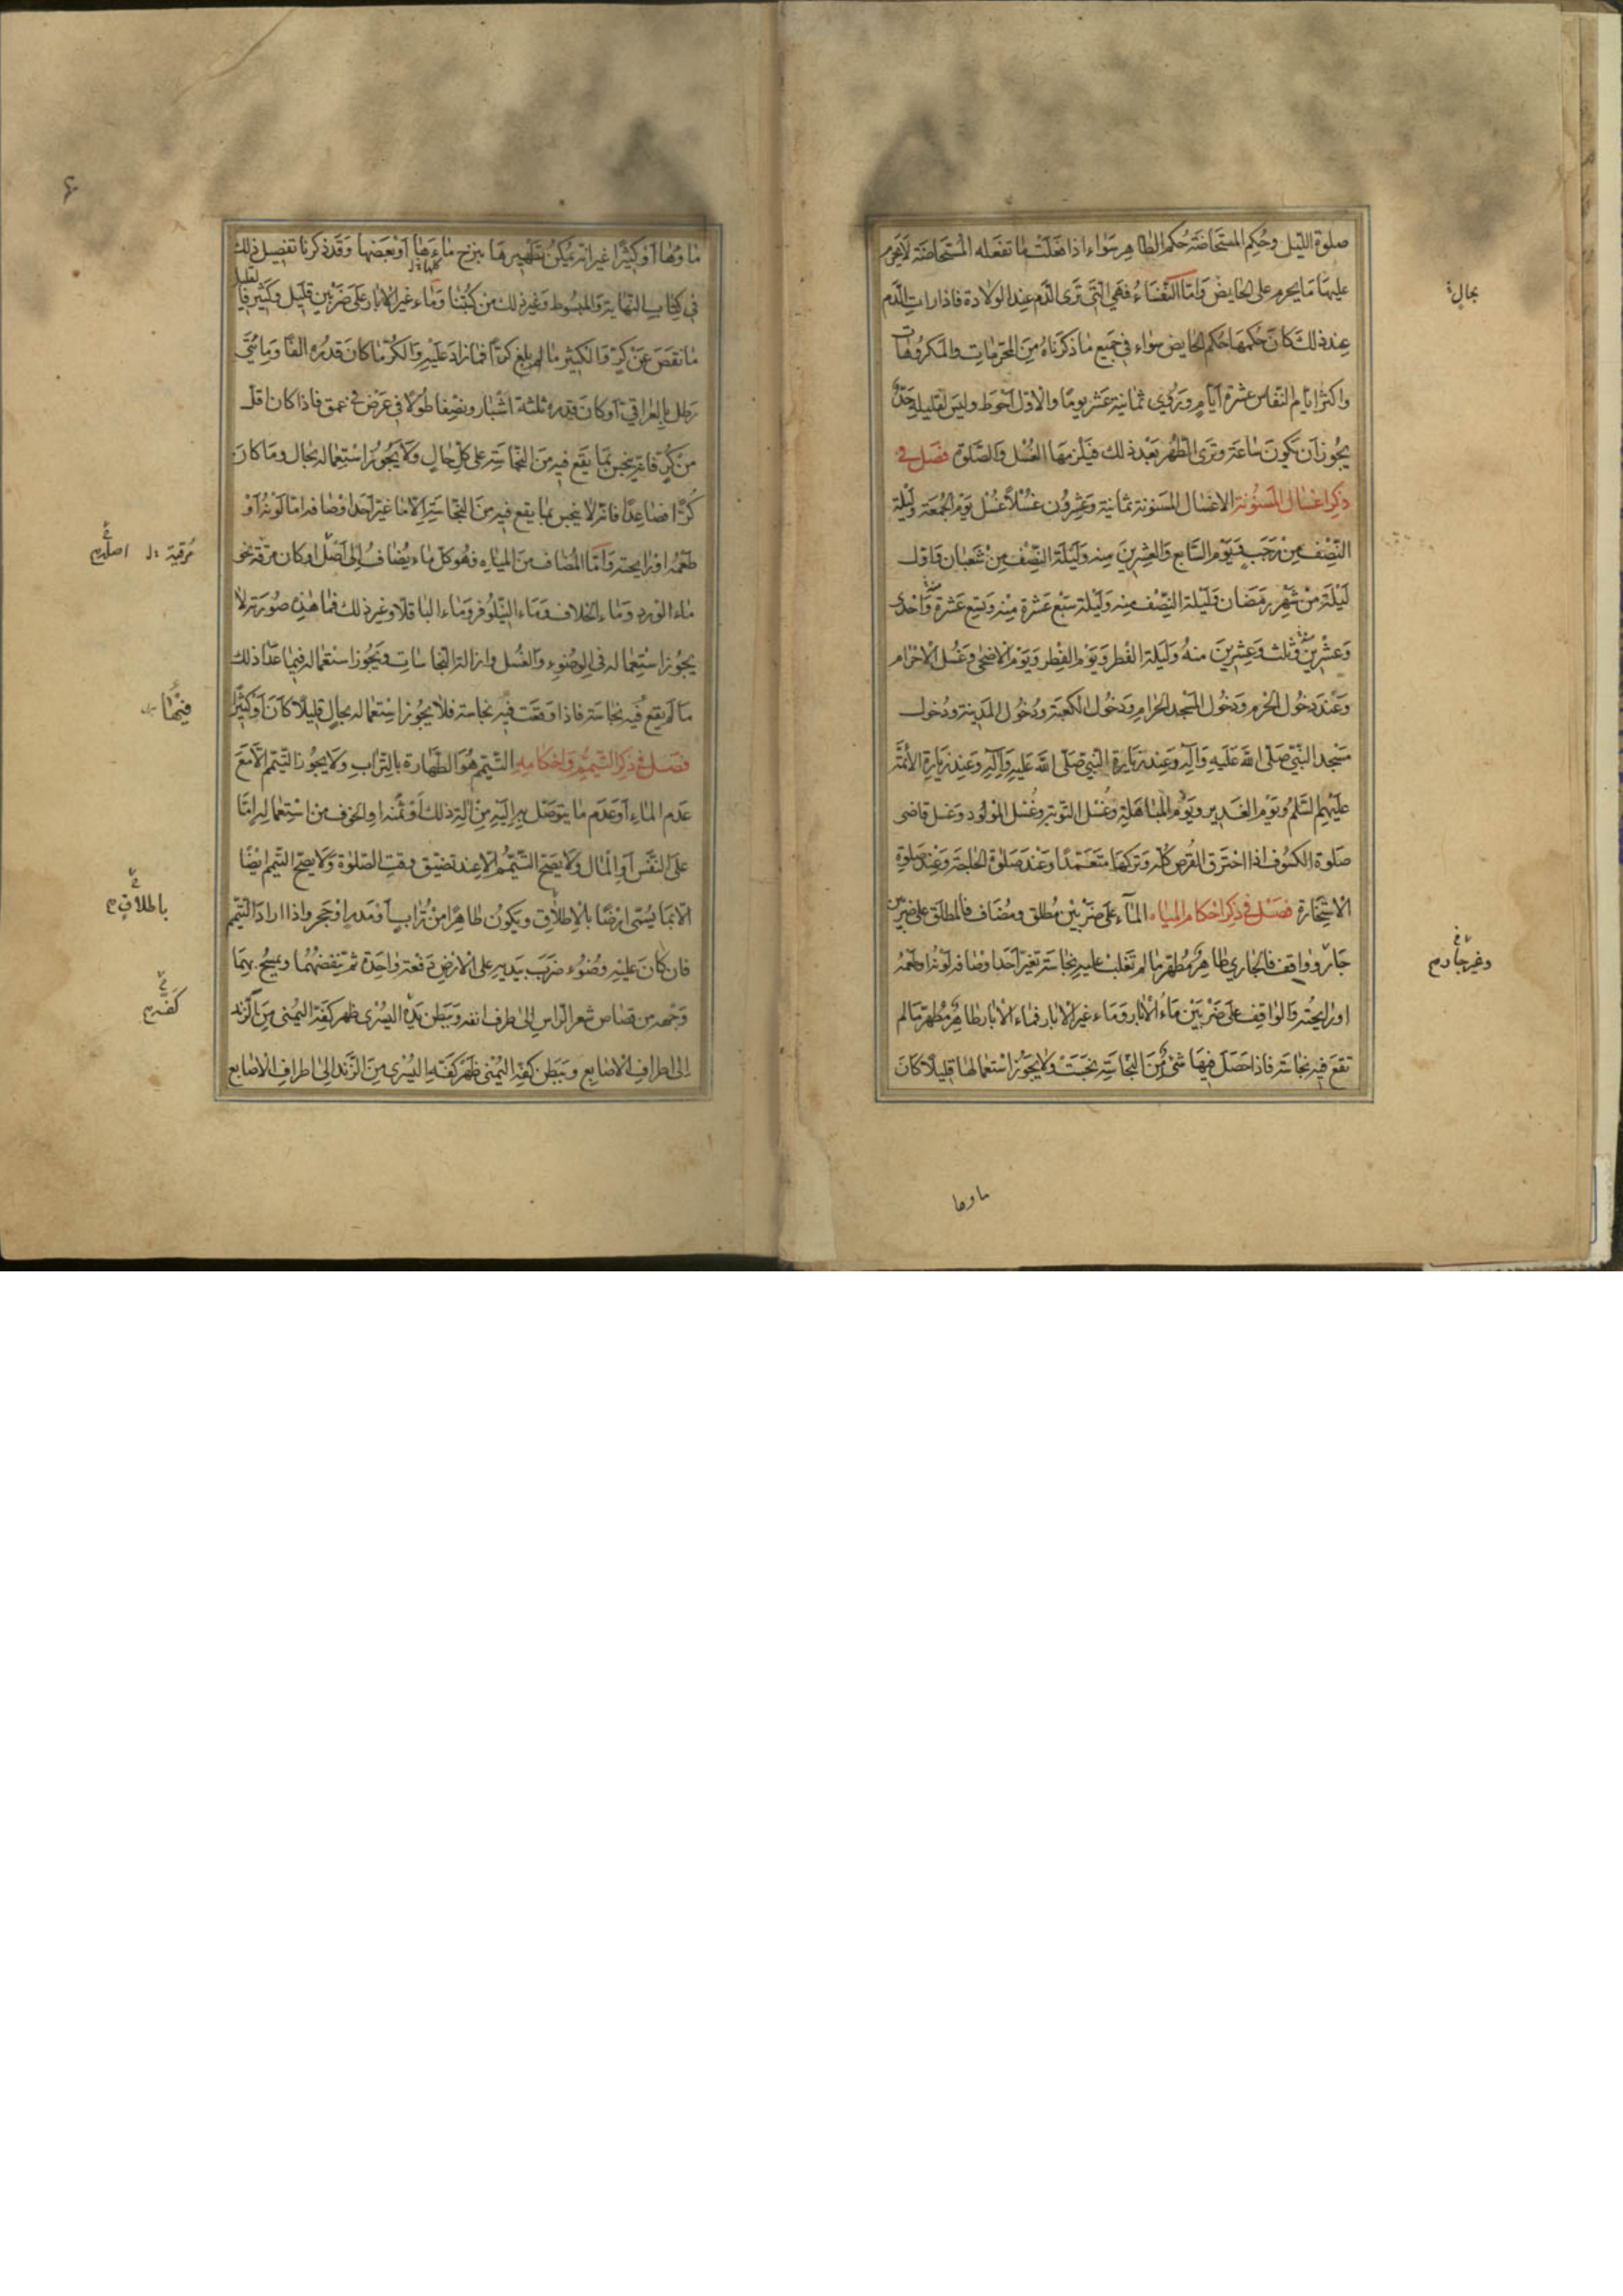 صلوة الليل وحكم المستحاضة حكم الطاهر سواء اذا فعلت ما تفعله المستحاضة لا يحرم
عليها ما يحرم على الحايض واما النفساء فهي التي ترى الدم عند الولادة فاذا رات الدم
بحال
عند ذلك كان حكمها حكم الحايض سواء في جميع ما ذكرناه من المحرمات والمكروهات
واكثر ايام النفاس عشرة ايام وروي ثمانية عشر يوما والاول احوط وليس لقليله حد
يجوز ان تكون ساعة وترى الطهر بعد ذلك فيلزمها الغسل والصلوة فصل في
ذكر اغسال المسنونة الاغسال المسنونة ثمانية وعشرون غسلا غسل يوم الجمعة وليلة
النصف من رجب ويوم السابع والعشرين منه وليلة النصف من شعبان واول
ليلة من شهر رمضان وليلة النصف منه وليلة سبع عشرة منه وتسع عشرة منه واحدى
وعشرين منه وثلث وعشرين منه وليلة الفطر ويوم الفطر ويوم الاضحى وغسل الاحرام
وعند دخول الحرم ودخول المسجد الحرام ودخول الكعبة ودخول المدينة ودخول
مسجد النبي صلى الله عليه وآله وعند زيارة النبي صلى الله عليه وآله وعند زيارة الائمة
عليهم السلم ويوم الغدير ويوم المباهلة وغسل التوبة وغسل المولود وغسل قاضى
صلوة الكسوف اذا احترق القرص كله وتركها متعمدا وعند صلوة الحاجة وعند صلوة
الاستخارة فصل في ذكر احكام المياه الماء على ضربين مطلق ومضاف فالمطلق على ضربين
جار وواقف فالجاري طاهر مطهر ما لم تغلب عليه نجاسة تغير احد اوصافه لونه او طعمه
وغير جار
او رايحته والواقف على ضربين ماء الابار وماء غير الابار فماء الابار طاهر مطهر ما لم
تقع فيه نجاسة فاذا حصل فيها شئ من النجاسة نجست ولا يجوز استعمالها قليلا كان
ماوها
ماوها او كثيرا غير انه يمكن تطهيرها بنزح ماءها او بعضها وقد ذكرنا تفصيل ذلك
كلها
في كتاب النهاية والمبسوط وغير ذلك من كتبنا وماء غير الابار على ضربين قليل وكثير فالقليل
ما نقص عن كر والكثير ما بلغ كرا فما زاد عليه والكر ما كان قدره الفا ومائتي
رطل بالعراقي او كان قدره ثلثة اشبار ونصفا طولا في عرض في عمق فاذا كان اقل
من كر فانه ينجس بما يقع فيه من النجاسة على كل حال ولا يجوز استعماله بحال وما كان
كرا فصاعدا فانه لا ينجس بما يقع فيه من النجاسة الا ما غير احد اوصافه اما لونه او
طعمه او رايحته واما المضاف من المياه فهو كل ماء يضاف الى اصل او كان مرقة نحو
مرقية اصله
ماء الورد وماء الخلاف وماء النيلوفر وماء الباقلا وغير ذلك فما هذه صورته لا
يجوز استعماله في الوضوء والغسل وازالة النجاسات ويجوز استعماله فيما عدا ذلك
ما لم يقع فيه نجاسة فاذا وقعت فيه نجاسة فلا يجوز استعماله بحال قليلا كان او كثيرا
فصل في ذكر التيمم واحكامه التيمم هو الطهارة بالتراب ولا يجوز التيمم الا مع
عدم الماء او عدم ما يتوصل به اليه من الة ذلك او ثمنه او الخوف من استعماله اما
على النفس او المال ولا يصح التيمم الا عند تضيق وقت الصلوة ولا يصح التيمم ايضا
الا بما يسمى ارضا بالاطلاق ويكون طاهرا من تراب او مدر او حجر واذا اراد التيمم
باطلاق
فان كان عليه وضوء ضرب بيديه على الارض دفعة واحدة ثم ينفضهما ويمسح بهما
وجهه من قصاص شعر الراس الى طرف انفه وببطن يده اليسرى ظهر كفه اليمنى من الزند
كفه
الى اطراف الاصابع وببطن كفه اليمنى ظهر كفه اليسرى من الزند الى اطراف الاصابع